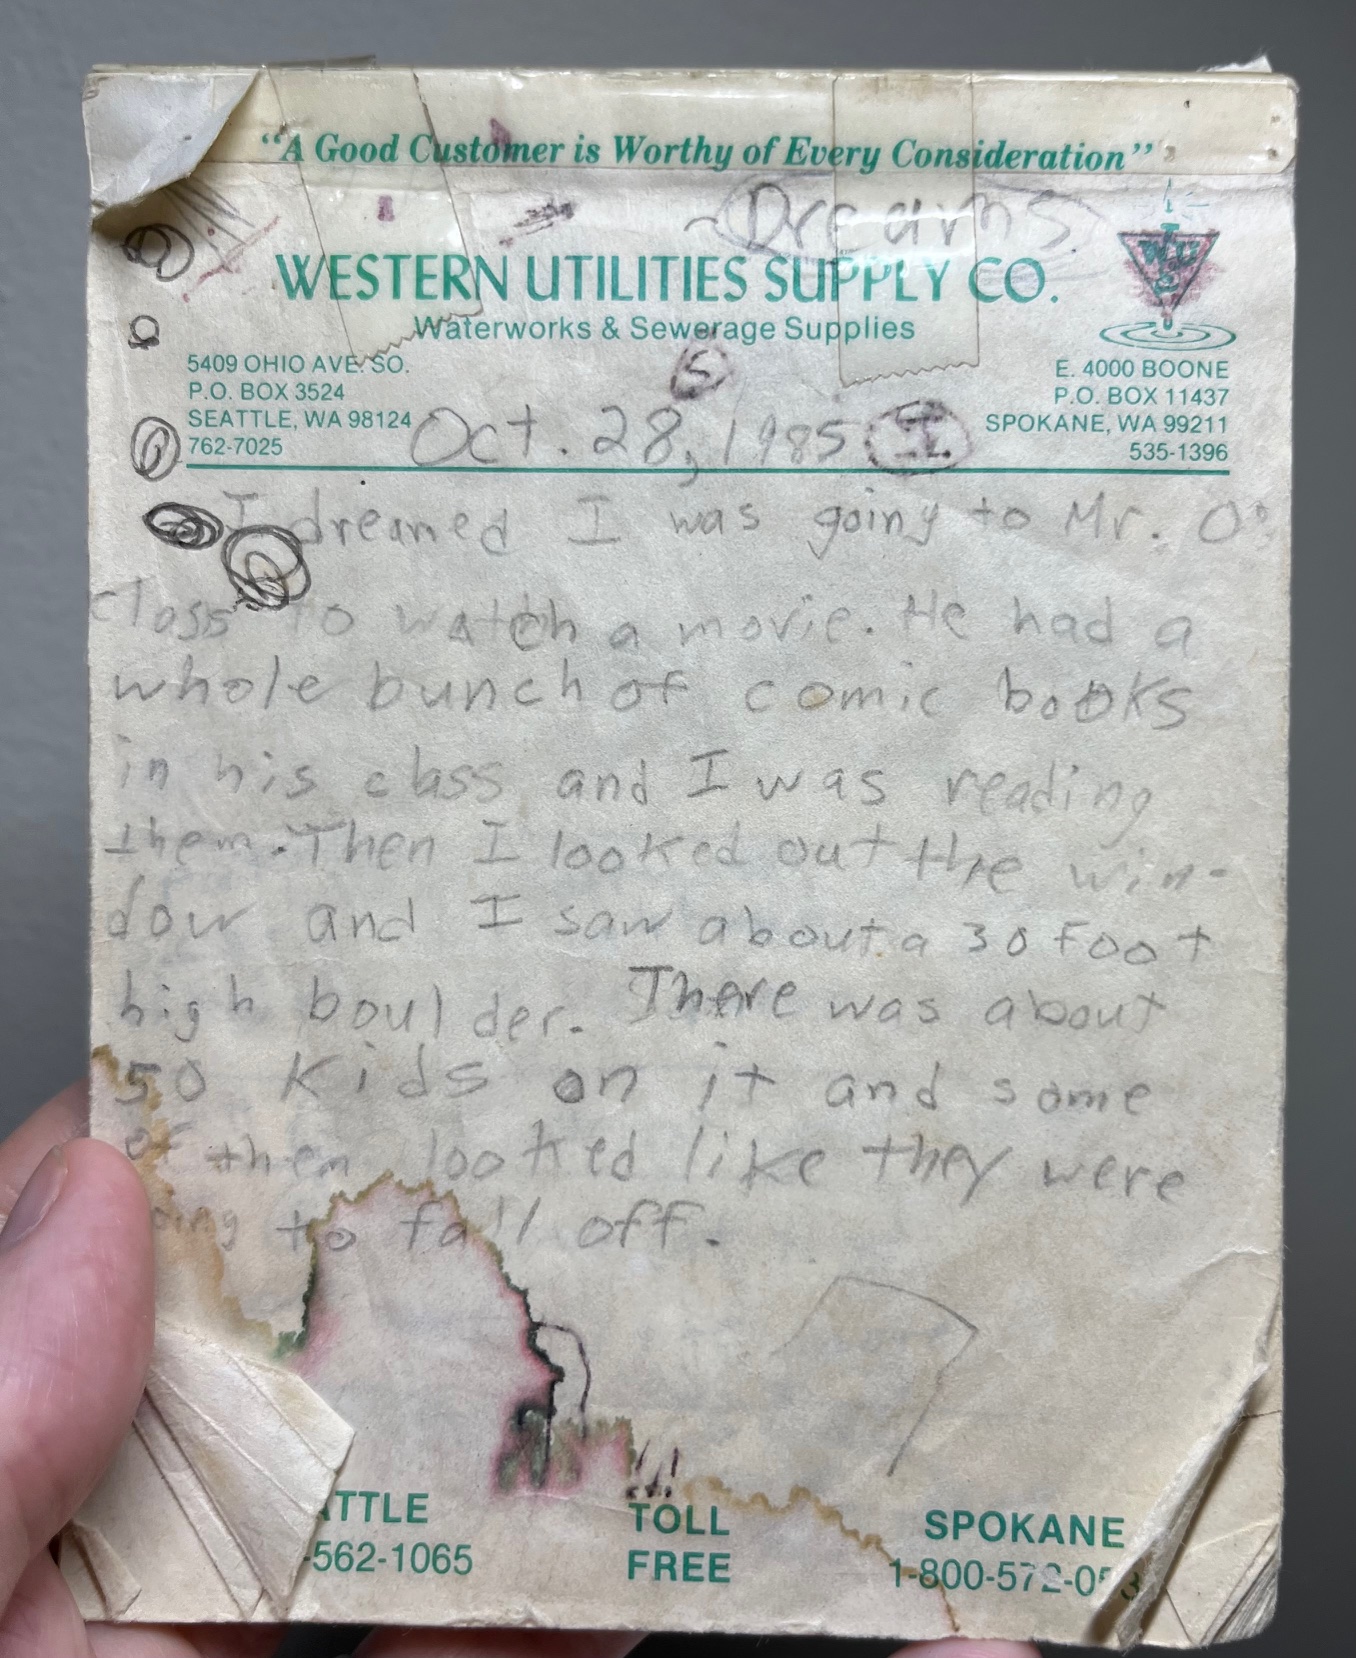 “A Good Customer is Worthy of Every Consideration”
Dreams
WESTERN UTILITIES SUPPLY CO.
Waterworks & Sewerage Supplies
5409 OHIO AVE. SO.
P.O. BOX 3524
SEATTLE, WA 98124
762-7025
E. 4000 BOONE
P.O. BOX 11437
SPOKANE, WA 99211
535-1396
Oct. 28, 1985
I dreamed I was going to Mr. O's
class to watch a movie. He had a
whole bunch of comic books
in his class and I was reading
them. Then I looked out the win-
dow and I saw about a 30 foot
high boulder. There was about
50 kids on it and some
of them looked like they were
to fall off.
TOLL
FREE
-562-1065
SPOKANE